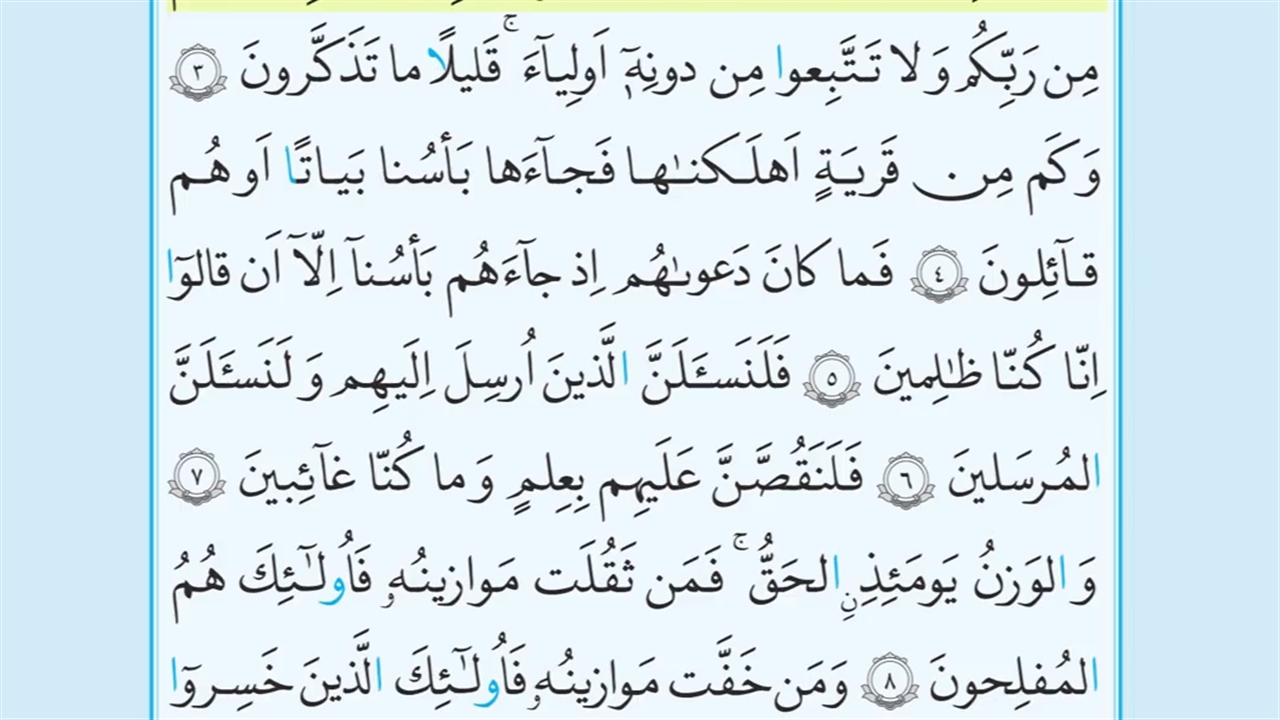 مِن رَبِّكُم وَلا تَتَّبِعوا مِن دونِهِٓ اَولِيآءَ ۚ قَليلًا ما تَذَكَّرونَ ٣
وَكَم مِن قَريَةٍ اَهلَكنٰها فَجآءَها بَأسُنا بَياتًا اَو هُم
قآئِلونَ ٤ فَما كانَ دَعوىٰهُم اِذ جآءَهُم بَأسُنآ اِلّآ اَن قالوٓا
اِنّا كُنّا ظٰلِمينَ ٥ فَلَنَسـَٔلَنَّ الَّذينَ اُرسِلَ اِلَيهِم وَلَنَسـَٔلَنَّ
المُرسَلينَ ٦ فَلَنَقُصَّنَّ عَلَيهِم بِعِلمٍ وَما كُنّا غآئِبينَ ٧
وَالوَزنُ يَومَئِذٍِنِ الحَقُّ ۚ فَمَن ثَقُلَت مَوازينُهو فَاُولٰٓئِكَ هُمُ
المُفلِحونَ ٨ وَمَن خَفَّت مَوازينُهو فَاُولٰٓئِكَ الَّذينَ خَسِروٓا